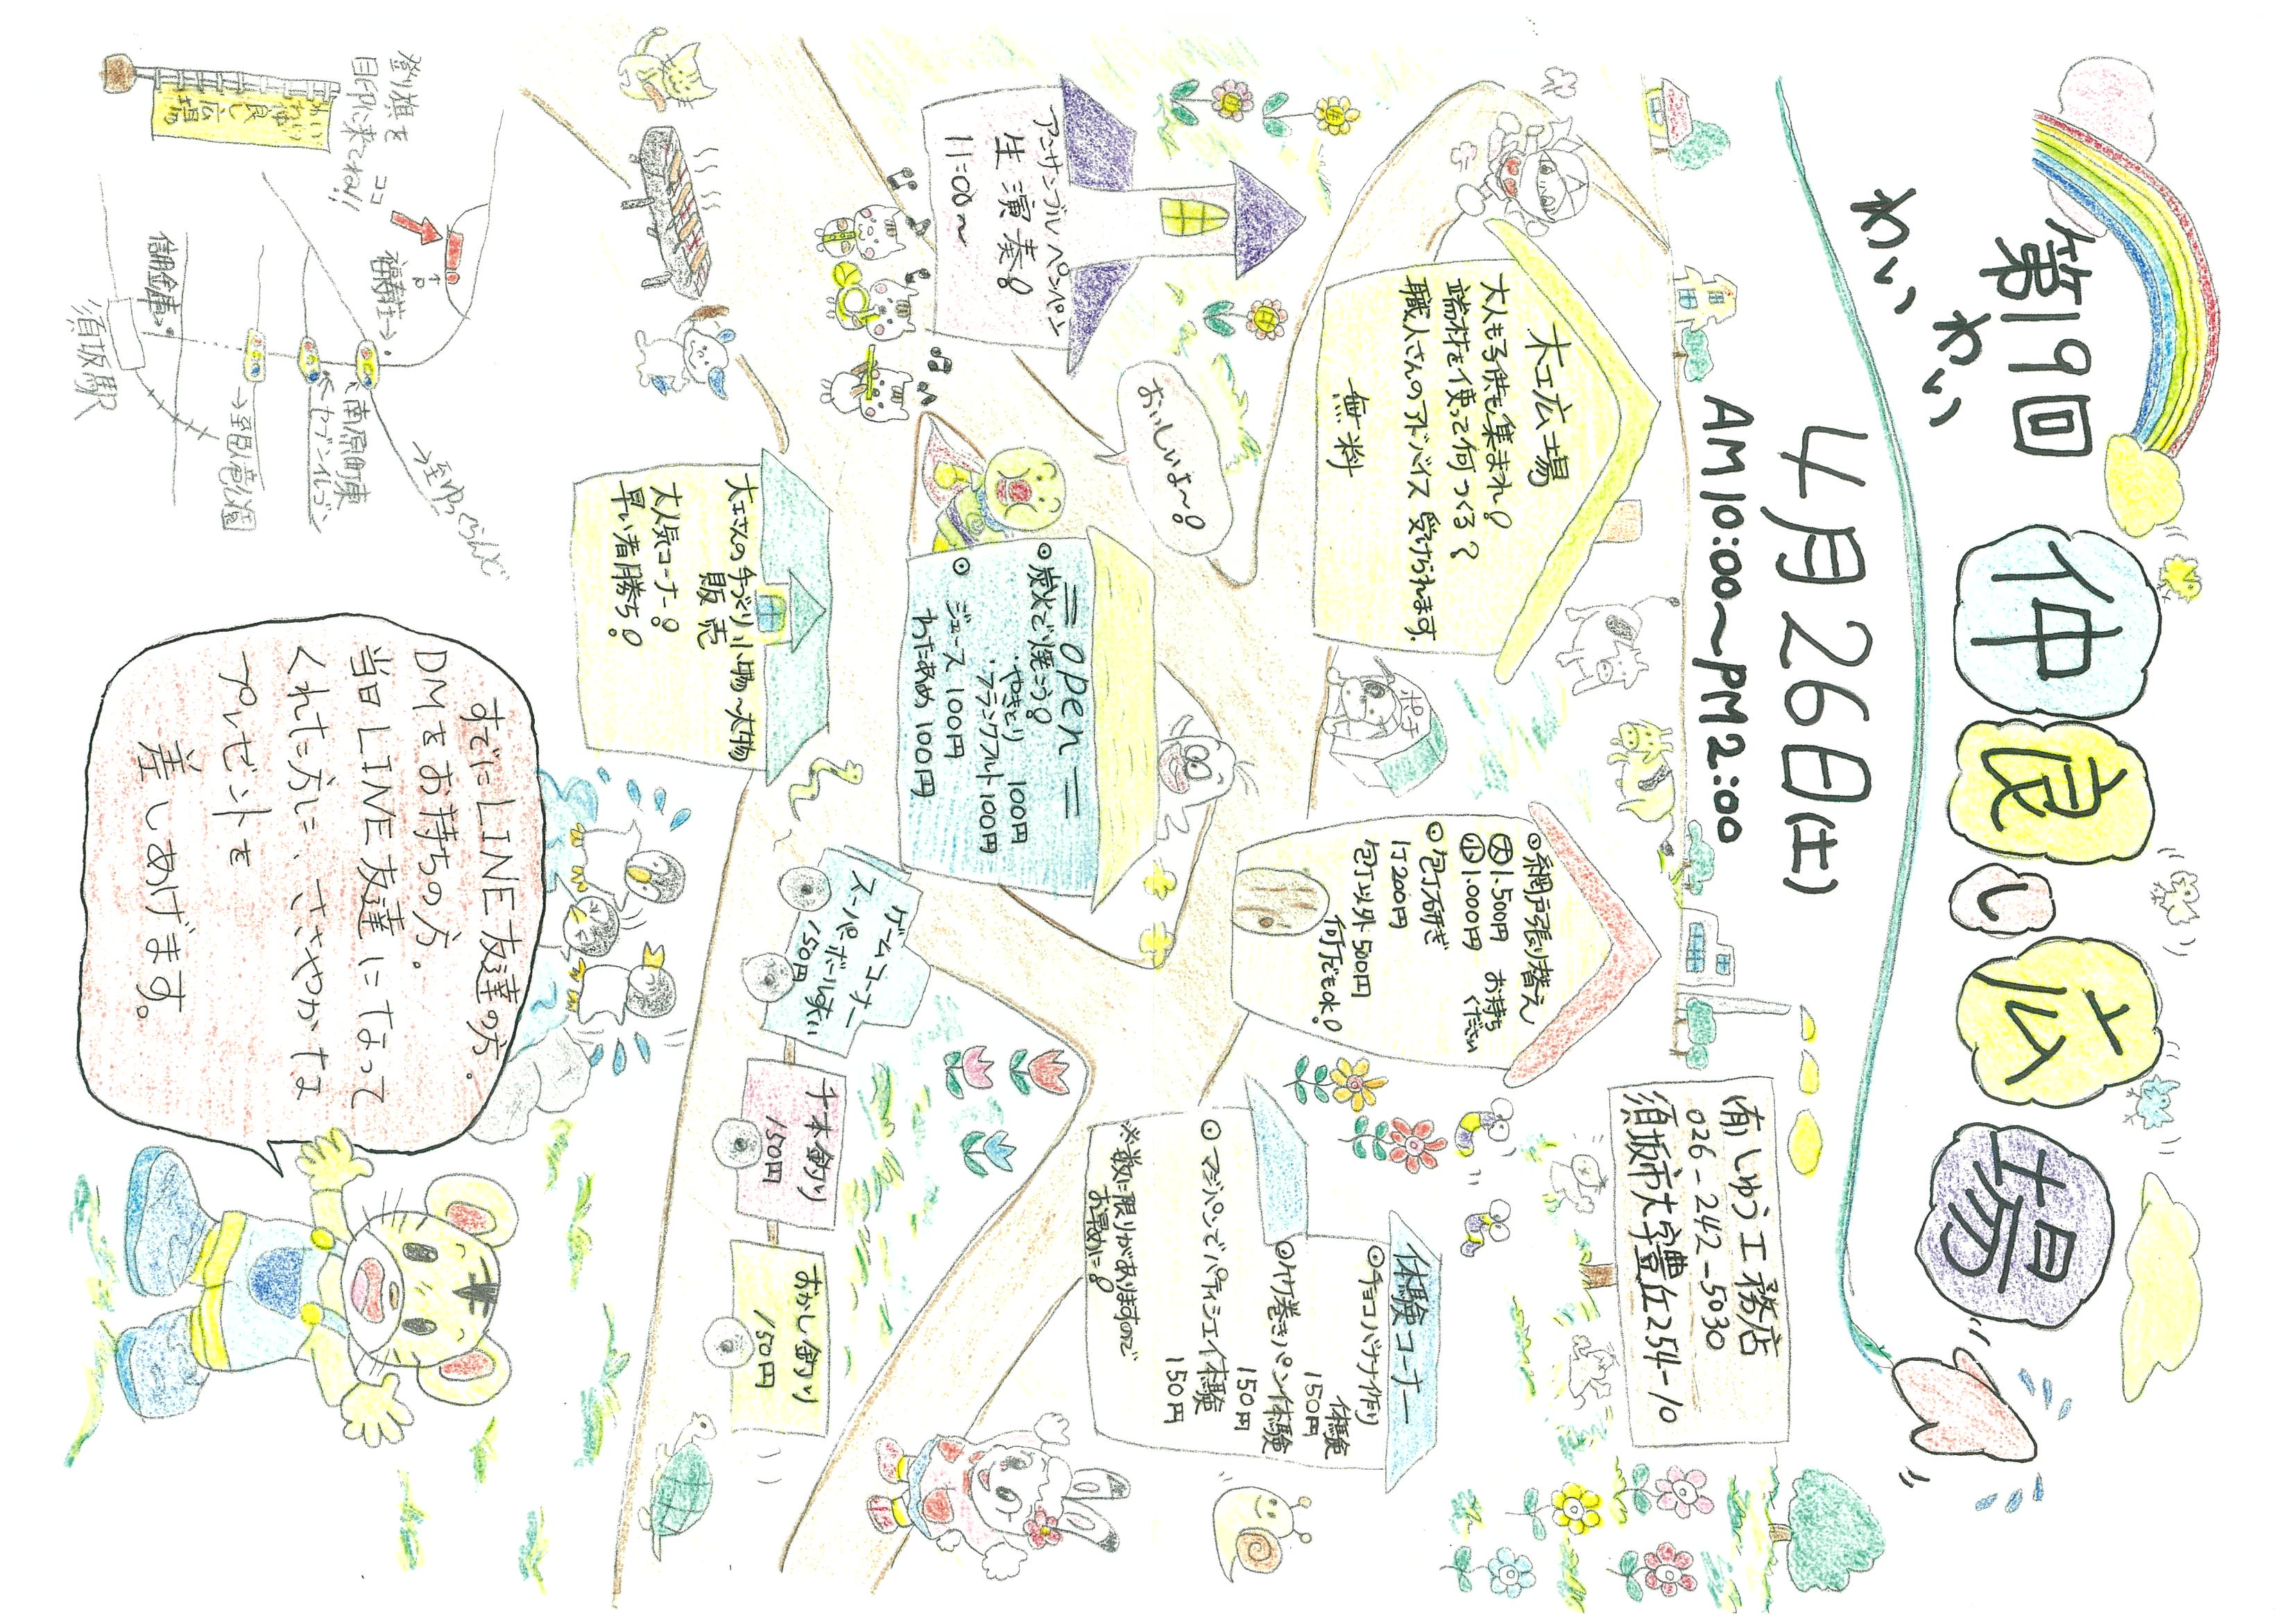 第19回
わいわい
仲良し広場
4月26日(土)
AM10:00〜PM2:00
(有)しゅう工務店
026-242-5030
須坂市大字豊丘254-10
木工広場
大人も子供も集まれ!
端材を使って何つくる?
職人さんのアドバイス受けられます。
無料
ポチ
◎網戸張り替え
大1.500円
小1.000円
お持ちください
◎包丁研ぎ
1丁200円
包丁以外500円
何丁でもOK!
体験コーナー
◎チョコバナナ作り体験
150円
◎竹巻きパン体験
150円
◎マジパンでパティシエ体験
150円
※数に限りがありますので
お早めに!
アンサンブルペンパン
生演奏!
11:00〜
おいしいよ〜!
=open=
◎炭火で焼こう!
・やきとり 100円
・フランクフルト100円
◎ジュース 100円
わたあめ 100円
大工さんの手づくり小物〜大物
販売
大人気コーナー!
早い者勝ち!
ゲームコーナー
スーパーボールすくい
150円
千本釣り
150円
おかし釣り
150円
登り旗を
目印に来てね!!
わいわい
仲良し広場
ココ
福寿荘→
P
信用金庫
須坂駅
南原町東
セブンイレブン
すでにLINE友達の方、
DMをお持ちの方。
当日LINE友達になって
くれた方に、ささやかな
プレゼントを
差しあげます。